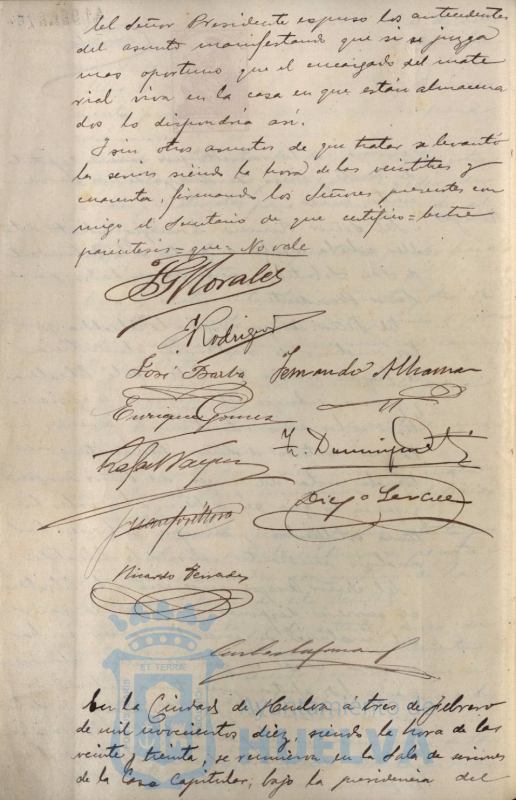 El Señor Presidente espuso los antecedentes
del asunto manifestando que si se juzga
mas oportuno que el encargado del mate
rial viva en la casa en que están almacena
dos lo dispondria asi.
Y sin otros asuntos de que tratar se levantó
la sesion siendo la hora de las veintitres y
cuarenta, firmando los Señores presentes con
migo el Secretario de que certifico = Entre
paréntesis = que = No vale
Morales
Rodriguez
José Barba Fernando Alhama
Enrique Gomez
Rafael Vazquez F. Dominguez
Diego
Ricardo
ET TERRÆ
Ayuntamiento de
HUELVA
En la Ciudad de Huelva á tres de febrero
de mil novecientos diez, siendo la hora de las
veinte y treinta, se reunieron en la Sala de sesiones
de la Casa Capitular, bajo la presidencia del